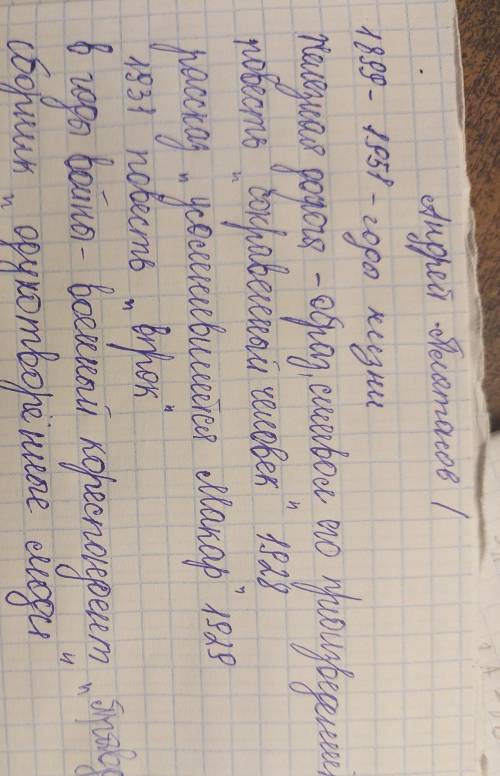 Андрей Платонов
1899 - 1951 - года жизни
Железная дорога - образ, символ его произведений
повесть "сокравенный человек" 1928
рассказ "усомнившийся Макар" 1929
1931 повесть "впрок"
в годы войны - военный кореспондент "
сборник "одухотворённые люди"